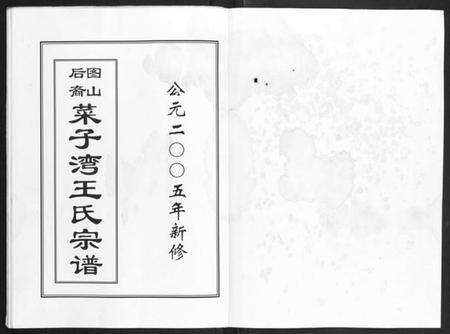 公元二〇〇五年新修
图山后裔
菜子湾王氏宗谱